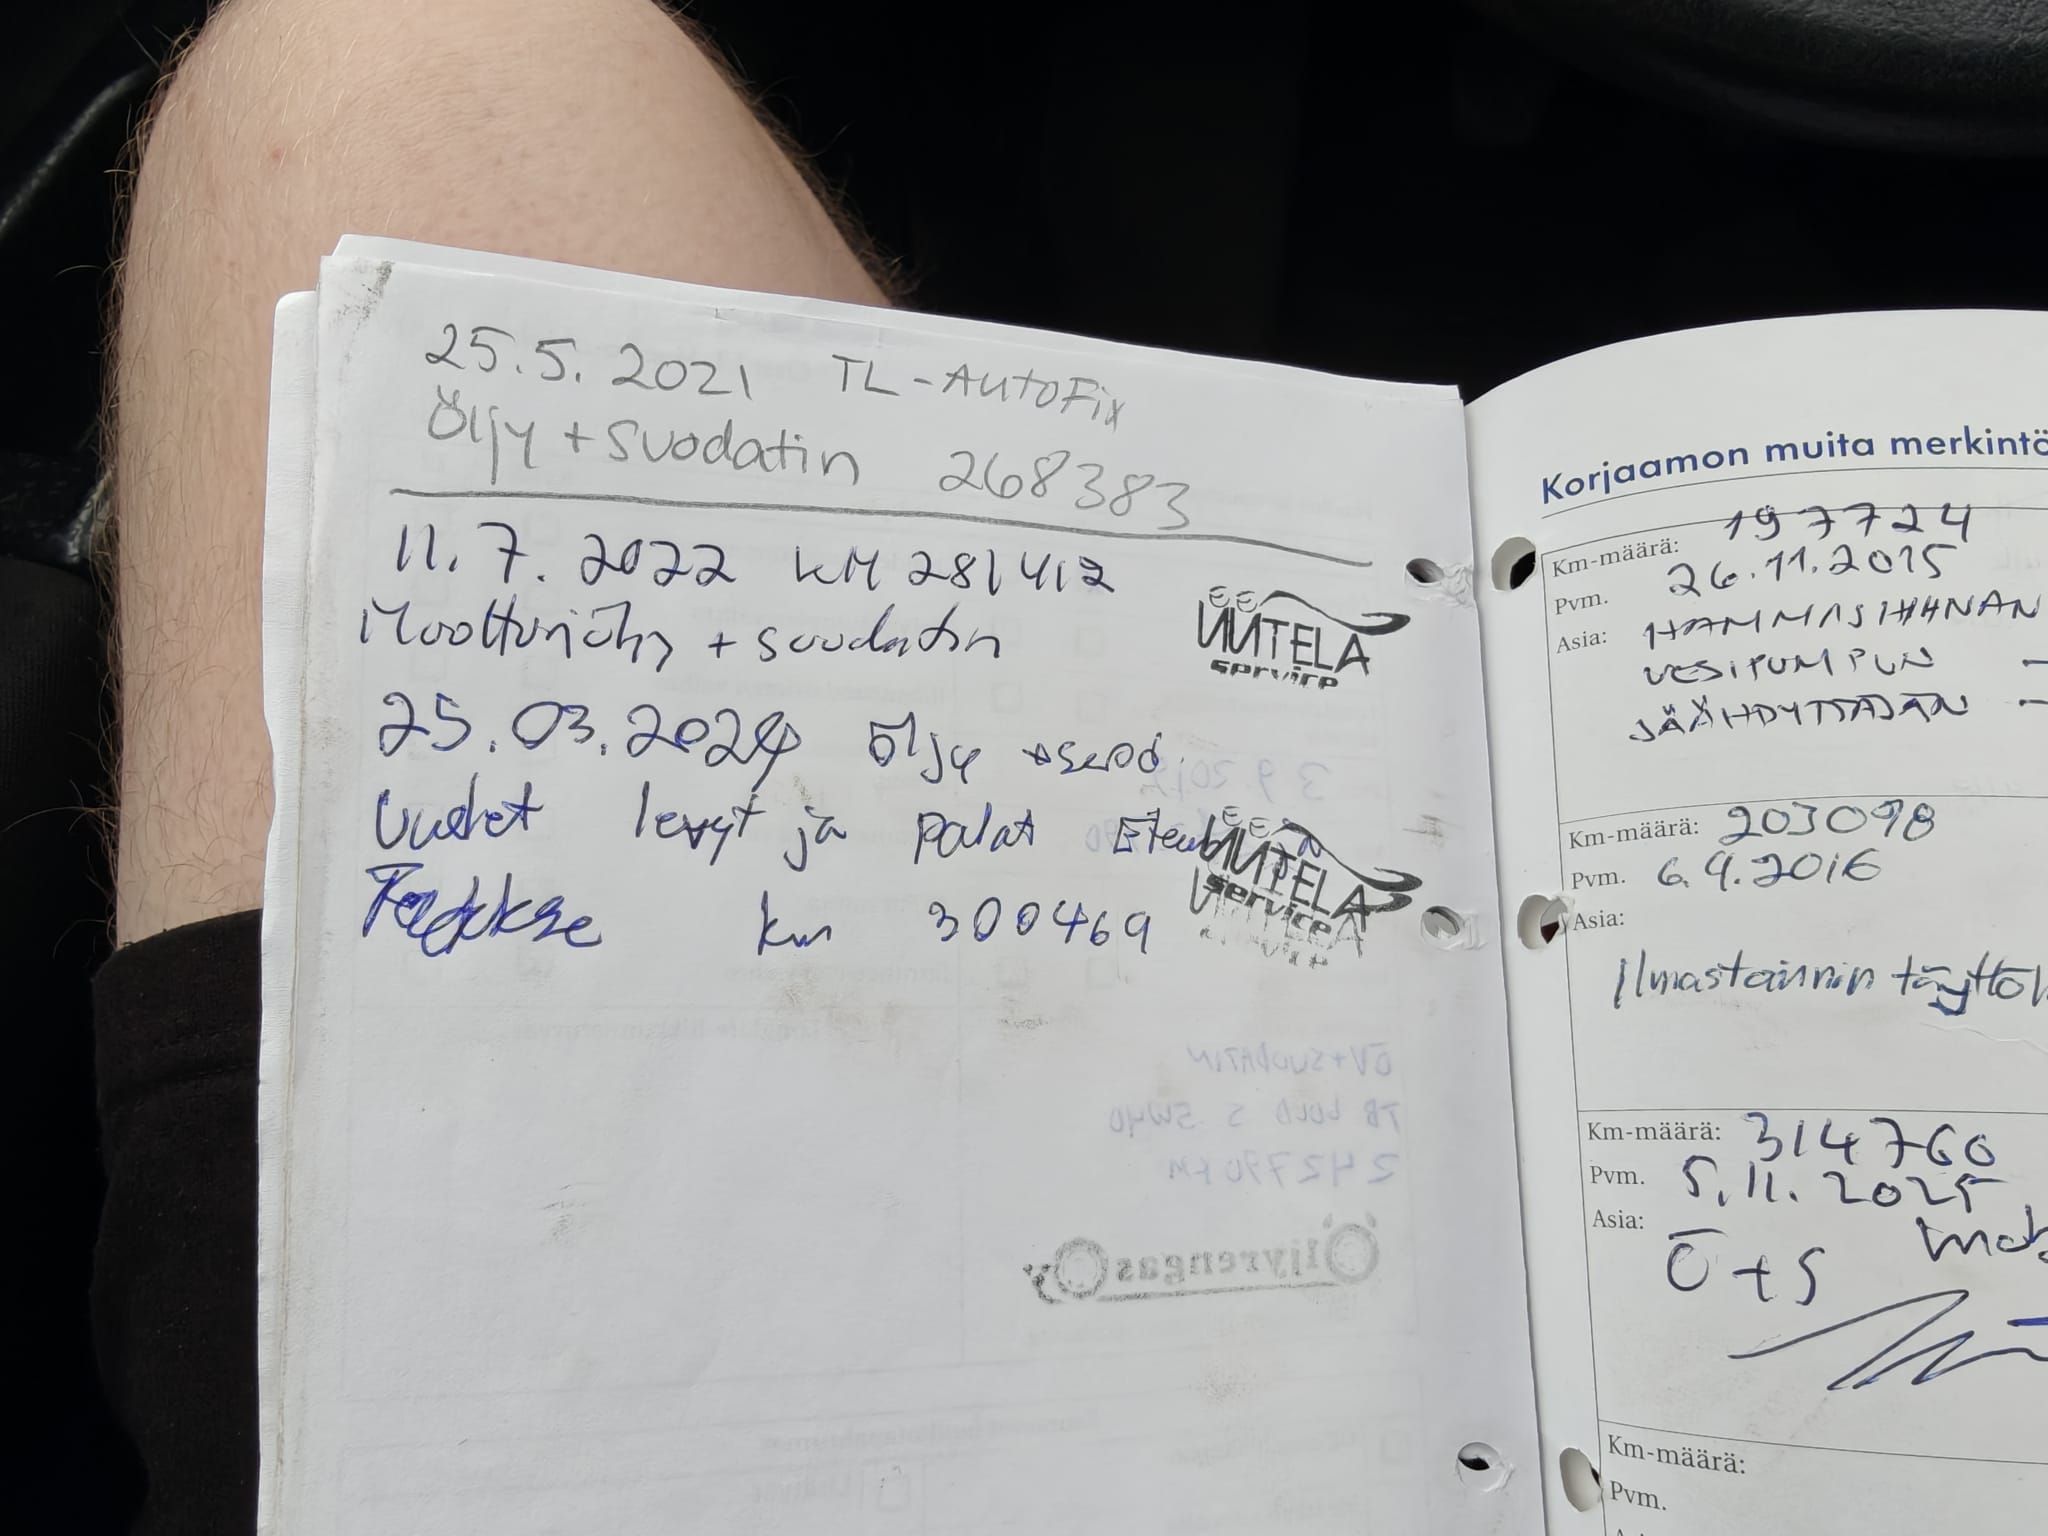 25.5.2021 TL-AutoFix
Öljy + Suodatin 268383
11.7.2022 KM 281412
Moottoriöljy + suodatin
UUTELA
service
25.03.2024 Öljy + suod.
Uudet levyt ja palat Eteen
km 300469
UUTELA
service
Korjaamon muita merkintö
Km-määrä: 197724
Pvm. 26.11.2015
Asia: HAMMASHIHNAN
VESIPUMPUN -
JÄÄHDYTTÄJÄN -
Km-määrä: 203098
Pvm. 6.4.2016
Asia:
Ilmastoinnin täyttöh
Km-määrä: 314760
Pvm. 5.11.2025
Asia:
Ö+S
Km-määrä:
Pvm.
3.9.2019
ÖV+SUODATIN
TB GOLD S 5W40
242790 KM
Öljyrengas Oy